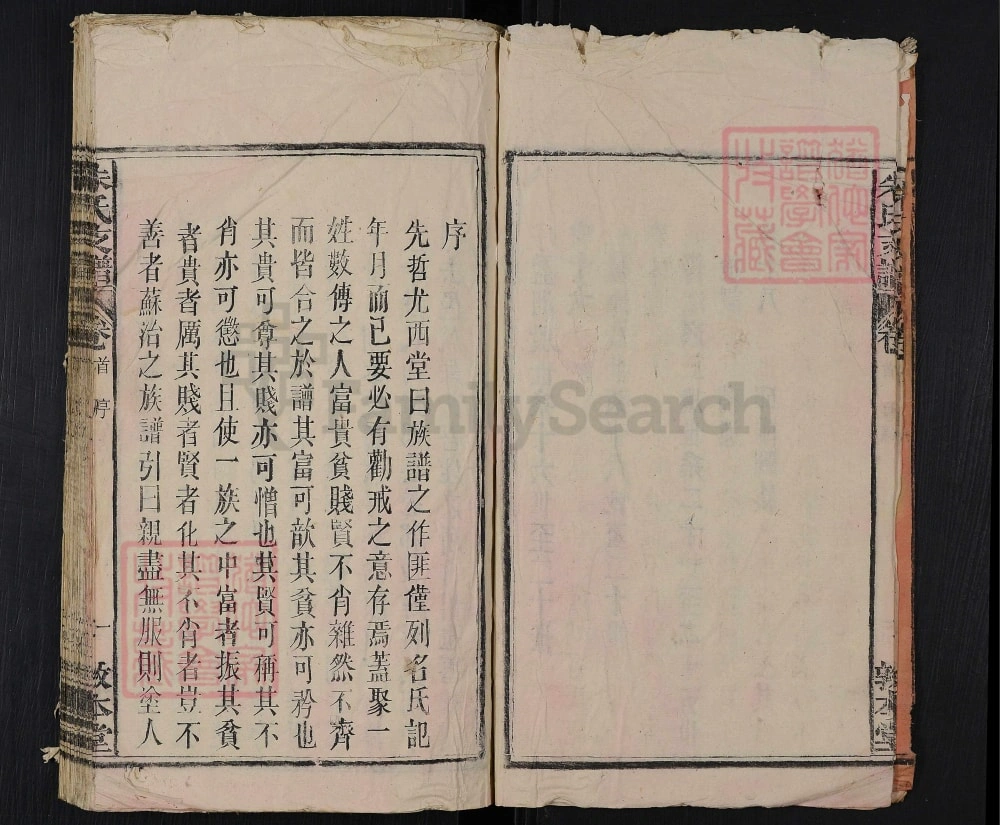 朱氏支譜
敦本堂
序
先哲尤西堂曰族譜之作匪僅列名氏記
年月而已要必有勸戒之意存焉蓋聚一
姓數傳之人富貴貧賤賢不肖雜然不齊
而皆合之於譜其富可歆其貧亦可矜也
其貴可尊其賤亦可憎也其賢可稱其不
肖亦可懲也且使一族之中富者振其貧
者貴者厲其賤者賢者化其不肖者豈不
善者蘇治之族譜引曰親盡無服則塗人
朱氏支譜
卷首
序
一
敦本堂
FamilySearch